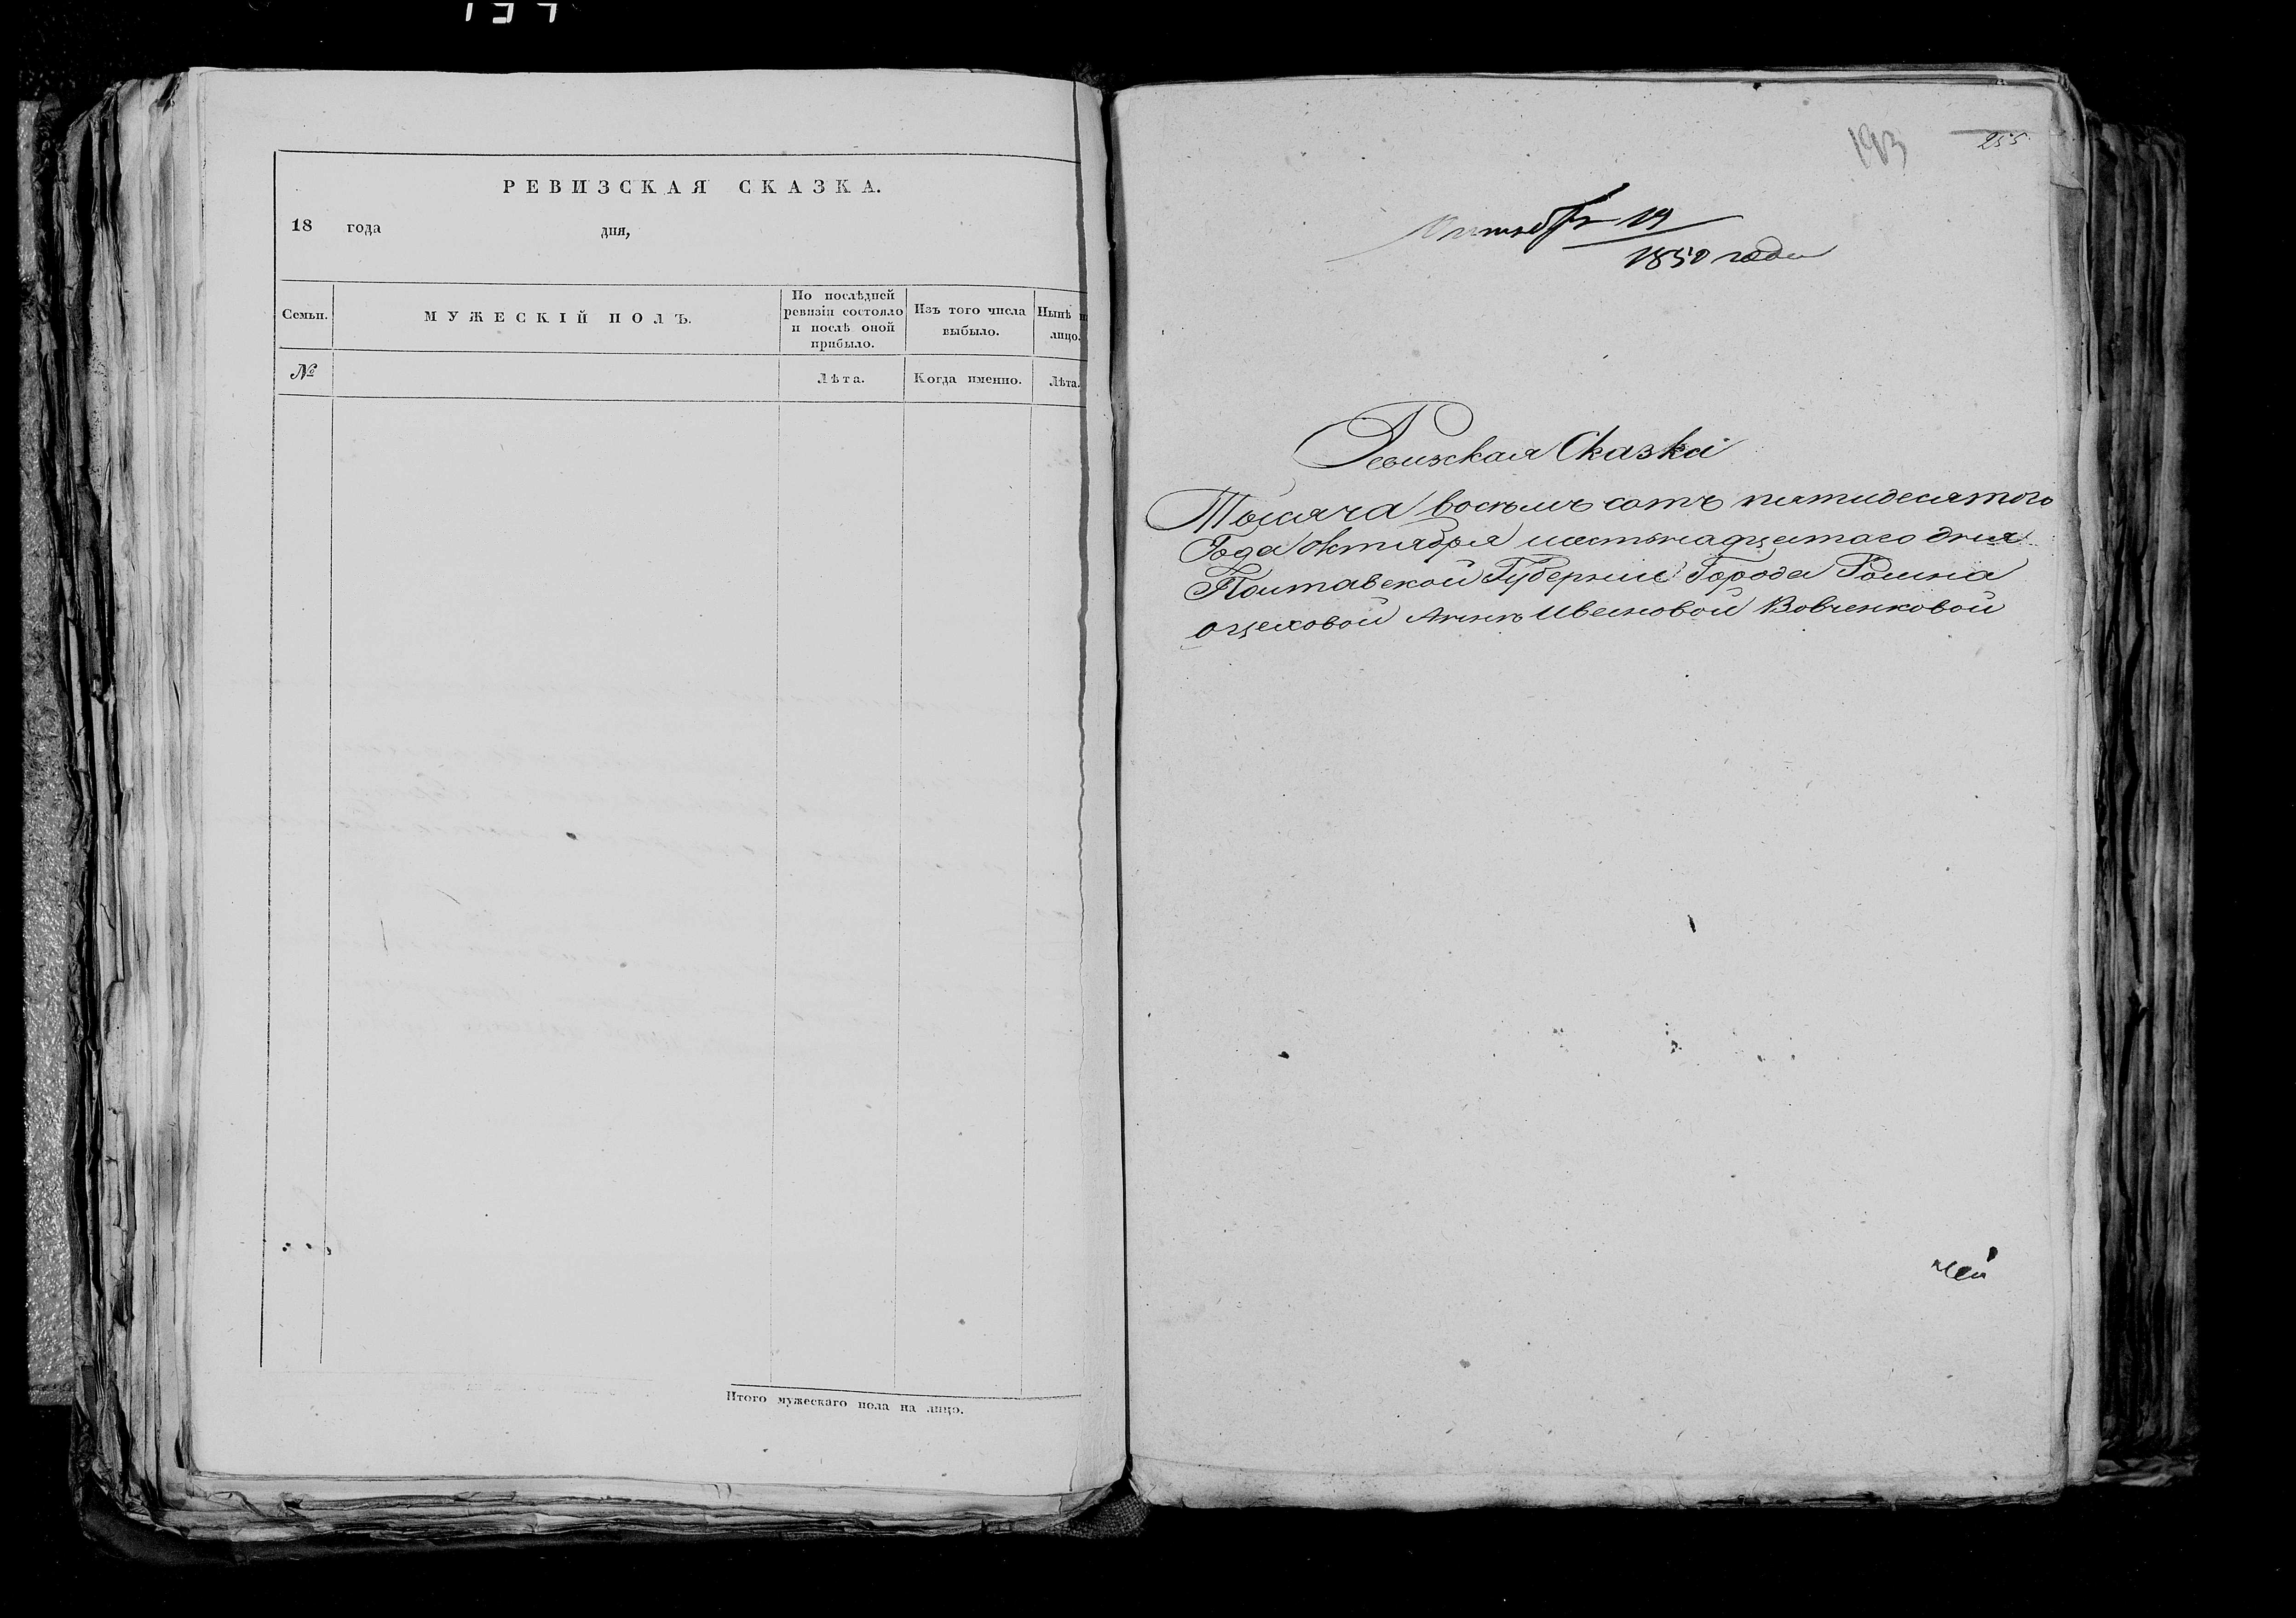 РЕВИЗСКАЯ СКАЗКА.
18 года дня,
Семьи.
МУЖЕСКІЙ ПОЛЪ.
По послѣдней
ревизіи состояло
и послѣ оной
прибыло.
Изъ того числа
выбыло.
Нынѣ
лицо.
№
Лѣта.
Когда именно.
Лѣта.
Итого мужескаго пола на лицо.
193
255
Октября 19
1850 года
Ревизкая Сказка
Тысяча восемь сотъ пятидесятого
Года октября шестьнадцатаго дня
Полтавской Губерніи Города Ромна
о цеховой Аннѣ Ивановой Вовченковой